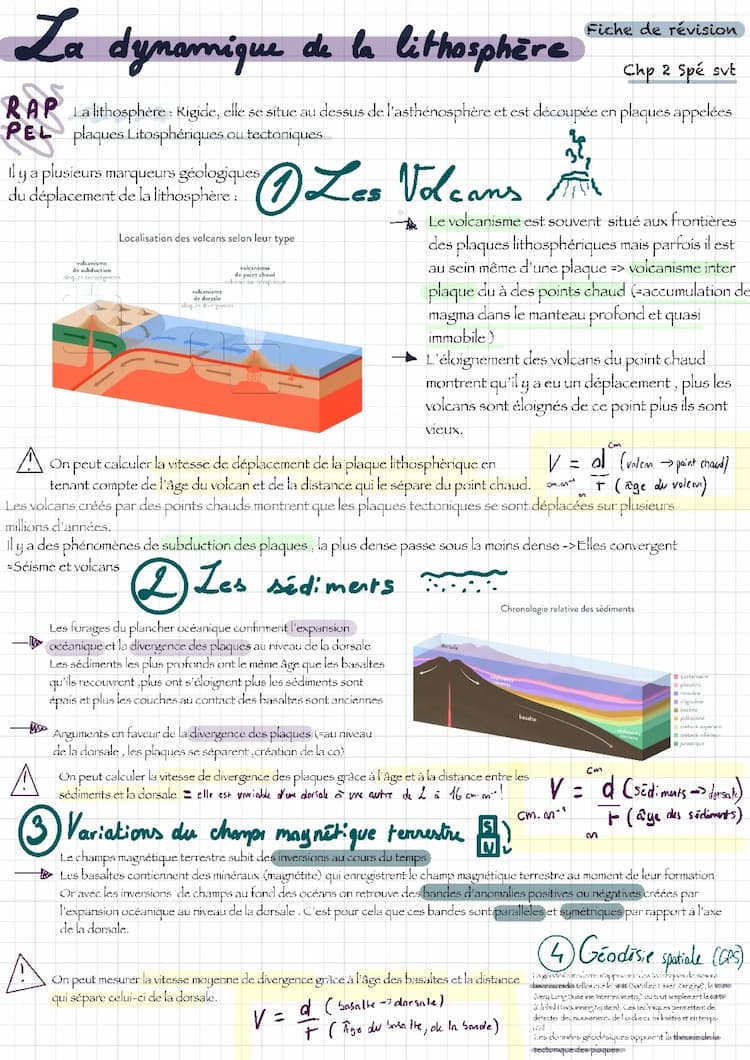 La dynamique de la lithosphère
Fiche de révision
Chp 2 Spé svt
RAP
PEL
La lithosphère : Rigide, elle se situe au dessus de l'asthénosphère et est découpée en plaques appelées
plaques Litosphériques ou tectoniques
Il y a plusieurs marqueurs géologiques
du déplacement de la lithosphère :
1 Les Volcans
Localisation des volcans selon leur type
volcanisme
de subduction
volcanisme
de dorsale
volcanisme
de point chaud
Le volcanisme est souvent situé aux frontières
des plaques lithosphériques mais parfois il est
au sein même d'une plaque => volcanisme inter
plaque du à des points chaud (=accumulation de
magma dans le manteau profond et quasi
immobile )
L'éloignement des volcans du point chaud
montrent qu'il y a eu un déplacement , plus les
volcans sont éloignés de ce point plus ils sont
vieux.
On peut calculer la vitesse de déplacement de la plaque lithosphérique en
tenant compte de l'âge du volcan et de la distance qui le sépare du point chaud.
V = d cm (volcan → point chaud)
cm.an⁻¹ T an (âge du volcan)
Les volcans créés par des points chauds montrent que les plaques tectoniques se sont déplacées sur plusieurs
millions d'années.
Il y a des phénomènes de subduction des plaques , la plus dense passe sous la moins dense ->Elles convergent
=Séisme et volcans
2 Les sédiments
Chronologie relative des sédiments
dorsale
basalte
Les forages du plancher océanique confirment l'expansion
océanique et la divergence des plaques au niveau de la dorsale
Les sédiments les plus profonds ont le même âge que les basaltes
qu'ils recouvrent ,plus ont s'éloignent plus les sédiments sont
épais et plus les couches au contact des basaltes sont anciennes
Arguments en faveur de la divergence des plaques (=au niveau
de la dorsale , les plaques se séparent ,création de la co)
On peut calculer la vitesse de divergence des plaques grâce à l'âge et à la distance entre les
sédiments et la dorsale = elle est variable d'une dorsale à une autre de 2 à 16 cm.an⁻¹ !
V = d cm (sédiments → dorsale)
cm.an⁻¹ T an (âge des sédiments)
3 Variations du champs magnétique terrestre
S
N
Le champs magnétique terrestre subit des inversions au cours du temps
Les basaltes contiennent des minéraux (magnétite) qui enregistrent le champ magnétique terrestre au moment de leur formation
Or avec les inversions de champs au fond des océans on retrouve des bandes d'anomalies positives ou négatives créées par
l'expansion océanique au niveau de la dorsale . C'est pour cela que ces bandes sont parallèles et symétriques par rapport à l'axe
de la dorsale.
On peut mesurer la vitesse moyenne de divergence grâce à l'âge des basaltes et la distance
qui sépare celui-ci de la dorsale.
V = d (basalte → dorsale)
T (Âge du basalte, de la bande)
4 Géodésie spatiale (GPS)
(Very Long Baseline Interferometry) ou tout simplement le GPS
(Global Positionning System). Ces techniques permettent de
Les données géodésiques appuient la théorie de la
tectonique des plaques